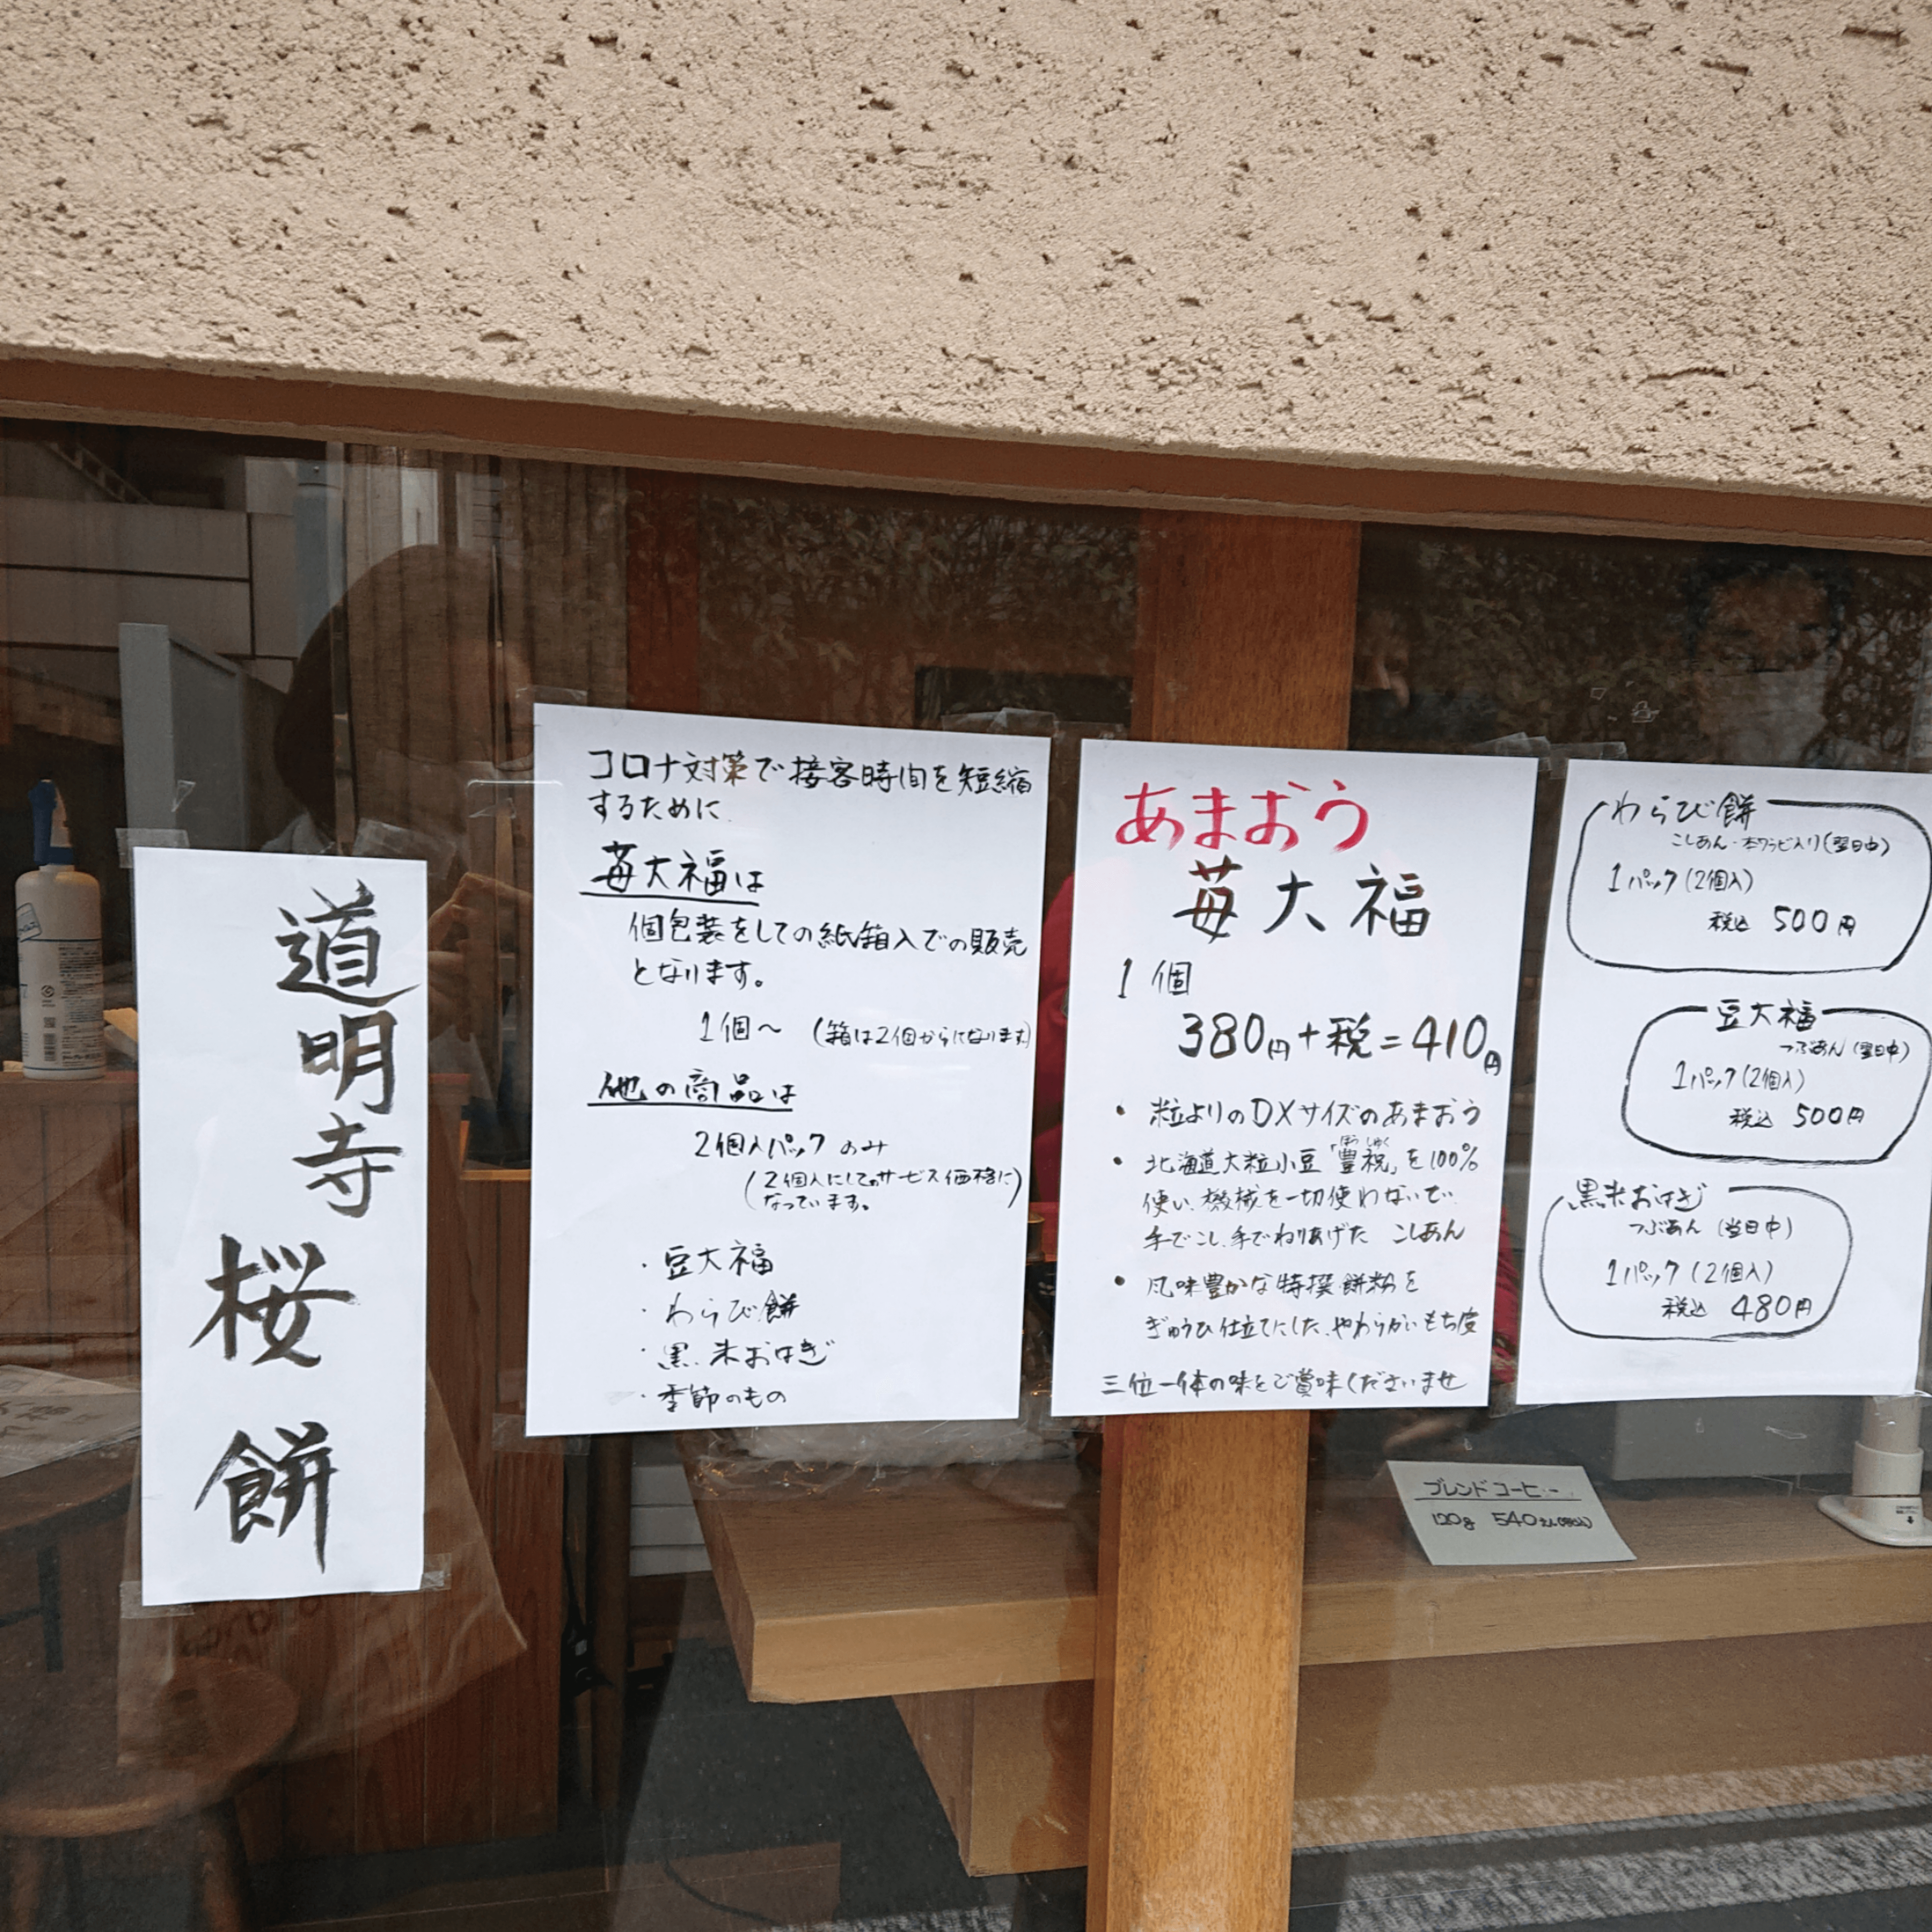 道明寺
桜餅
コロナ対策で接客時間を短縮
するために
苺大福は
個包装をしての紙箱入での販売
となります。
1個〜 (箱は2個からになります)
他の商品は
2個入パックのみ
(2個入にしてのサービス価格に
なっています。)
・豆大福
・わらび餅
・黒米おはぎ
・季節のもの
あまおう
苺大福
1個
380円+税=410円
• 粒よりのDXサイズのあまおう
• 北海道大粒小豆「豊祝」を100%
ほうしゅく
使い、機械を一切使わないで、
手でこし、手でねりあげた こしあん
• 風味豊かな特撰餅粉を
ぎゅうひ仕立てにした、やわらかいもち皮
三位一体の味をご賞味くださいませ
わらび餅
こしあん・本ワラビ入り(翌日中)
1パック(2個入)
税込 500円
豆大福
つぶあん(翌日中)
1パック(2個入)
税込 500円
黒米おはぎ
つぶあん(当日中)
1パック(2個入)
税込 480円
ブレンドコーヒー
120g 540